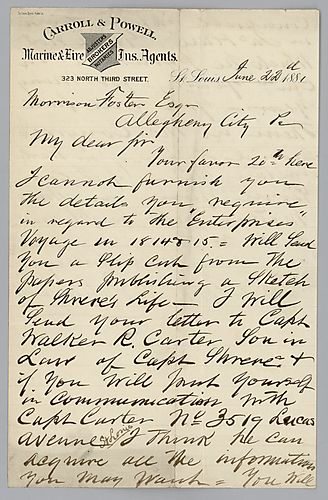 CARROLL & POWELL
Marine & Fire Ins. Agents.
323 NORTH THIRD STREET.
St. Louis June 22d 1881
Morrison Foster Esqr
Allegheny City Pa
My dear sir
Your favor 20th here
I cannot furnish you
the details you require
in regard to the "Enterprises"
Voyage in 1814 & 15 = Will Send
You a Slip cut from the
Papers publishing a Sketch
of Shreve's Life — I Will
Send your letter to Capt
Walker R. Carter Son in
Law of Capt Shreve &
if You Will put Yourself
in Communication with
Capt Carter No 3519 Lucas
Avenue St Louis I think he can
acquire all the information
You May Want = You Will